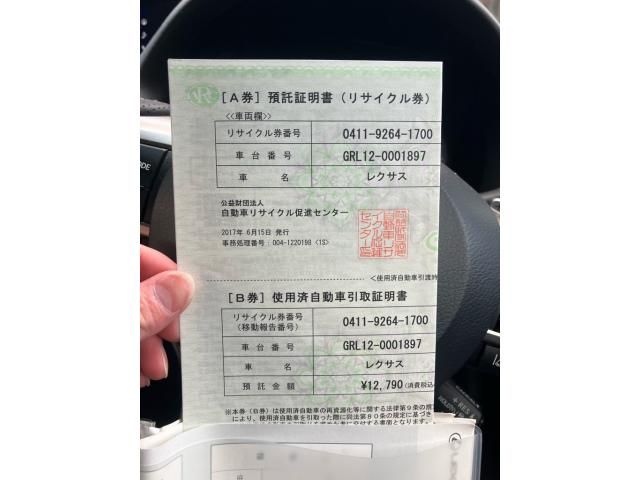 [A券] 預託証明書（リサイクル券）
<<車両欄>>
リサイクル券番号 0411-9264-1700
車台番号 GRL12-0001897
車名 レクサス
公益財団法人
自動車リサイクル促進センター
2017年 6月15日 発行
事務処理番号：004-1220198 <1S>
<使用済自動車引渡時
[B券] 使用済自動車引取証明書
リサイクル券番号 0411-9264-1700
(移動報告番号)
車台番号 GRL12-0001897
車名 レクサス
預託金額 ¥12,790(消費税込
※本券（B券）は使用済自動車の再資源化等に関する法律第9条の規
により、使用済自動車を引取った際に同法第80条の規定に基づき